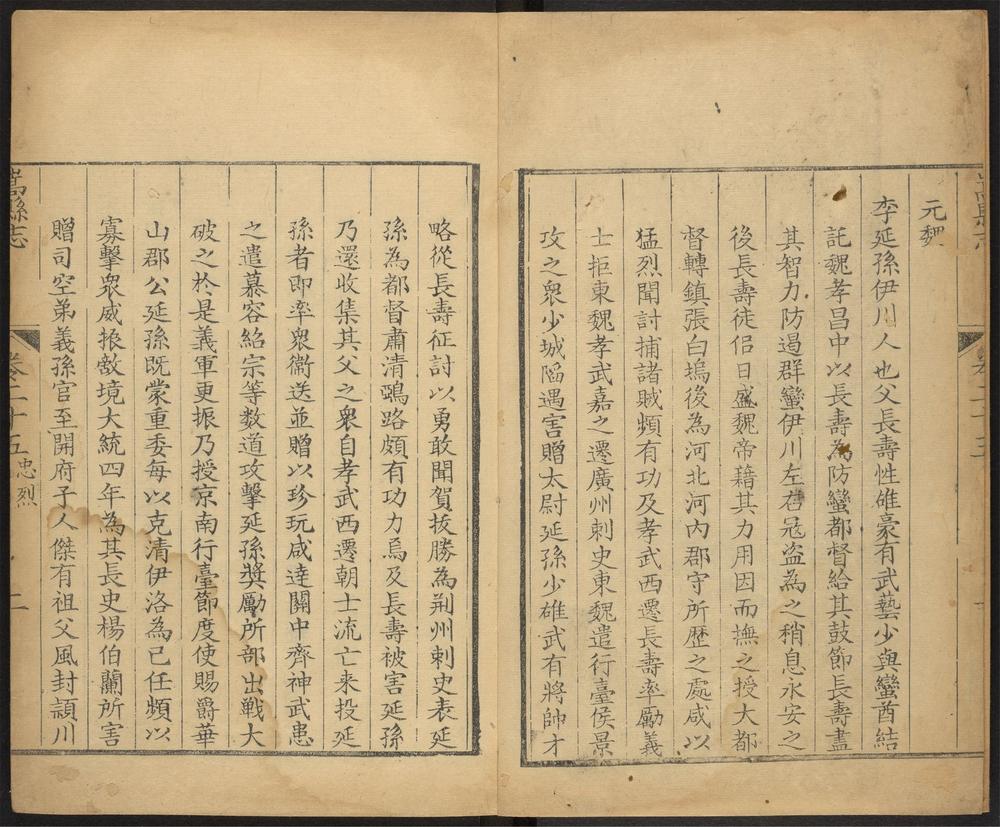 元魏
李延孫伊川人也父長壽性雄豪有武藝少與蠻酋結
託魏孝昌中以長壽為防蠻都督給其鼓節長壽盡
其智力防遏群蠻伊川左右寇盜為之稍息永安之
後長壽徒侶日盛魏帝藉其力用因而撫之授大都
督轉鎮張白塢後為河北河內郡守所歷之處咸以
猛烈聞討捕諸賊頻有功及孝武西遷長壽率勵義
士拒東魏孝武嘉之遷廣州刺史東魏遣行臺侯景
攻之衆少城陷遇害贈太尉延孫少雄武有將帥才
略從長壽征討以勇敢聞賀拔勝為荆州刺史表延
孫為都督肅清鵶路頗有功力焉及長壽被害延孫
乃還收集其父之衆自孝武西遷朝士流亡来投延
孫者即率衆衞送並贈以珍玩咸達關中齊神武患
之遣慕容紹宗等数道攻擊延孫獎勵所部出戰大
破之於是義軍更振乃授京南行臺節度使賜爵華
山郡公延孫既蒙重委每以克清伊洛為己任頻以
寡擊衆威振敵境大統四年為其長史楊伯蘭所害
贈司空弟義孫官至開府子人傑有祖父風封潁川
嵩縣志 卷二十五忠烈 二